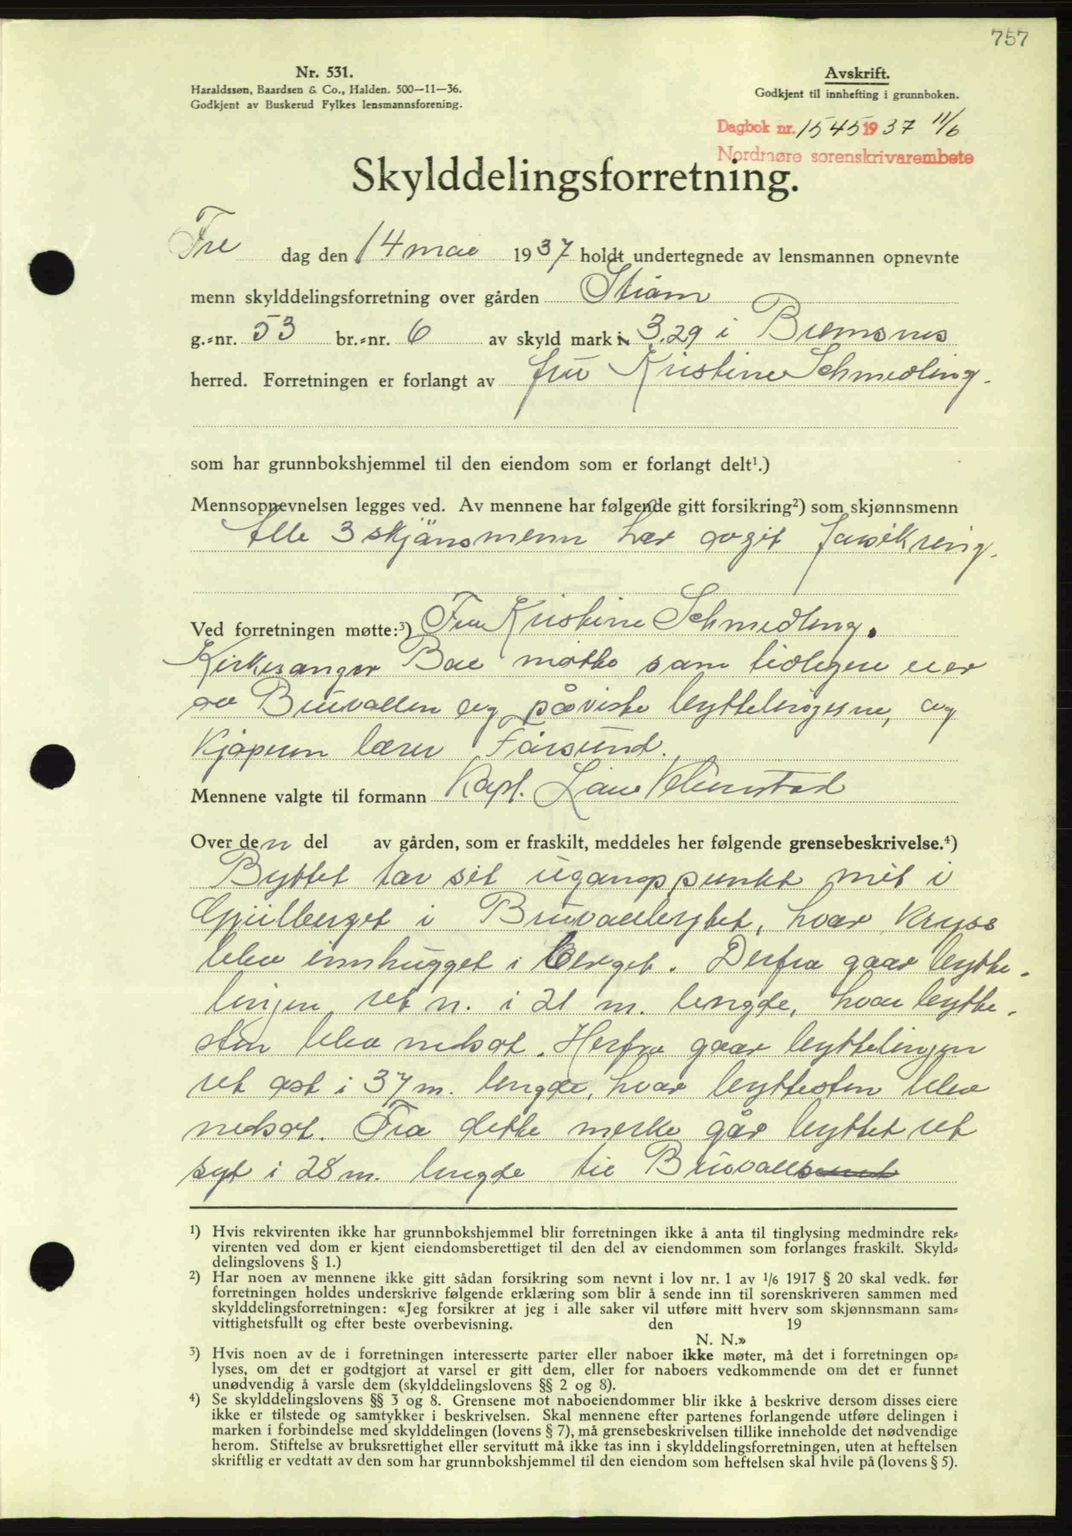 757
Nr. 531.
Haraldssøn, Baardsen & Co., Halden. 500—11—36.
Godkjent av Buskerud Fylkes lensmannsforening.
Avskrift.
Godkjent til innhefting i grunnboken.
Dagbok nr. 1545 1937 11/6
Nordmøre sorenskrivarembete
Skylddelingsforretning.
Fre dag den 14 mai 1937 holdt undertegnede av lensmannen opnevnte
menn skylddelingsforretning over gården
g.-nr. 53 br.-nr. 6 av skyld mark 3.29 i Bremsnes
herred. Forretningen er forlangt av fru Kristine Schmedling.
som har grunnbokshjemmel til den eiendom som er forlangt delt¹.)
Mennsopnevnelsen legges ved. Av mennene har følgende gitt forsikring²) som skjønnsmenn
Alle 3 skjönsmenn har avgit forsikring.
Ved forretningen møtte:³) Fru Kristine Schmedling.
Kirkesanger Boe møtte som tidligere eier
av Bruvollen og påviste byttelinjerne, og
Kjøperen lærer Farsund.
Mennene valgte til formann Kapt. Lars
Over den del av gården, som er fraskilt, meddeles her følgende grensebeskrivelse.⁴)
Byttet tar sit ugangspunkt mit i
i Bruvollbyttet, hvor kryss
blev innhugget i berget. Derfra gaar bytte-
linjen ret n. i 21 m. lengde, hvor bytte-
sten blev nedsat. Herfra gaar byttelinjen
ret øst i 37 m. lengde, hvor byttesten blev
nedsat. Fra dette merke går byttet ret
syd i 28 m. lengde til
¹) Hvis rekvirenten ikke har grunnbokshjemmel blir forretningen ikke å anta til tinglysing medmindre rek-
virenten ved dom er kjent eiendomsberettiget til den del av eiendommen som forlanges fraskilt. Skyld-
delingslovens § 1.)
²) Har noen av mennene ikke gitt sådan forsikring som nevnt i lov nr. 1 av 1/6 1917 § 20 skal vedk. før
forretningen holdes underskrive følgende erklæring som blir å sende inn til sorenskriveren sammen med
skylddelingsforretningen: «Jeg forsikrer at jeg i alle saker vil utføre mitt hverv som skjønnsmann sam-
vittighetsfullt og efter beste overbevisning. den 19
N. N.»
³) Hvis noen av de i forretningen interesserte parter eller naboer ikke møter, må det i forretningen op-
lyses, om det er godtgjort at varsel er gitt dem, eller for naboers vedkommende om det er funnet
unødvendig å varsle dem (skylddelingslovens §§ 2 og 8).
⁴) Se skylddelingslovens §§ 3 og 8. Grensene mot naboeiendommer blir ikke å beskrive dersom disses eiere
ikke er tilstede og samtykker i beskrivelsen. Skal mennene efter partenes forlangende utføre delingen i
marken i forbindelse med skylddelingen (lovens § 7), må grensebeskrivelsen tillike inneholde det nødvendige
herom. Stiftelse av bruksrettighet eller servitutt må ikke tas inn i skylddelingsforretningen, uten at heftelsen
skriftlig er vedtatt av den som har grunnbokshjemmel til den eiendom som heftelsen skal hvile på (lovens § 5).